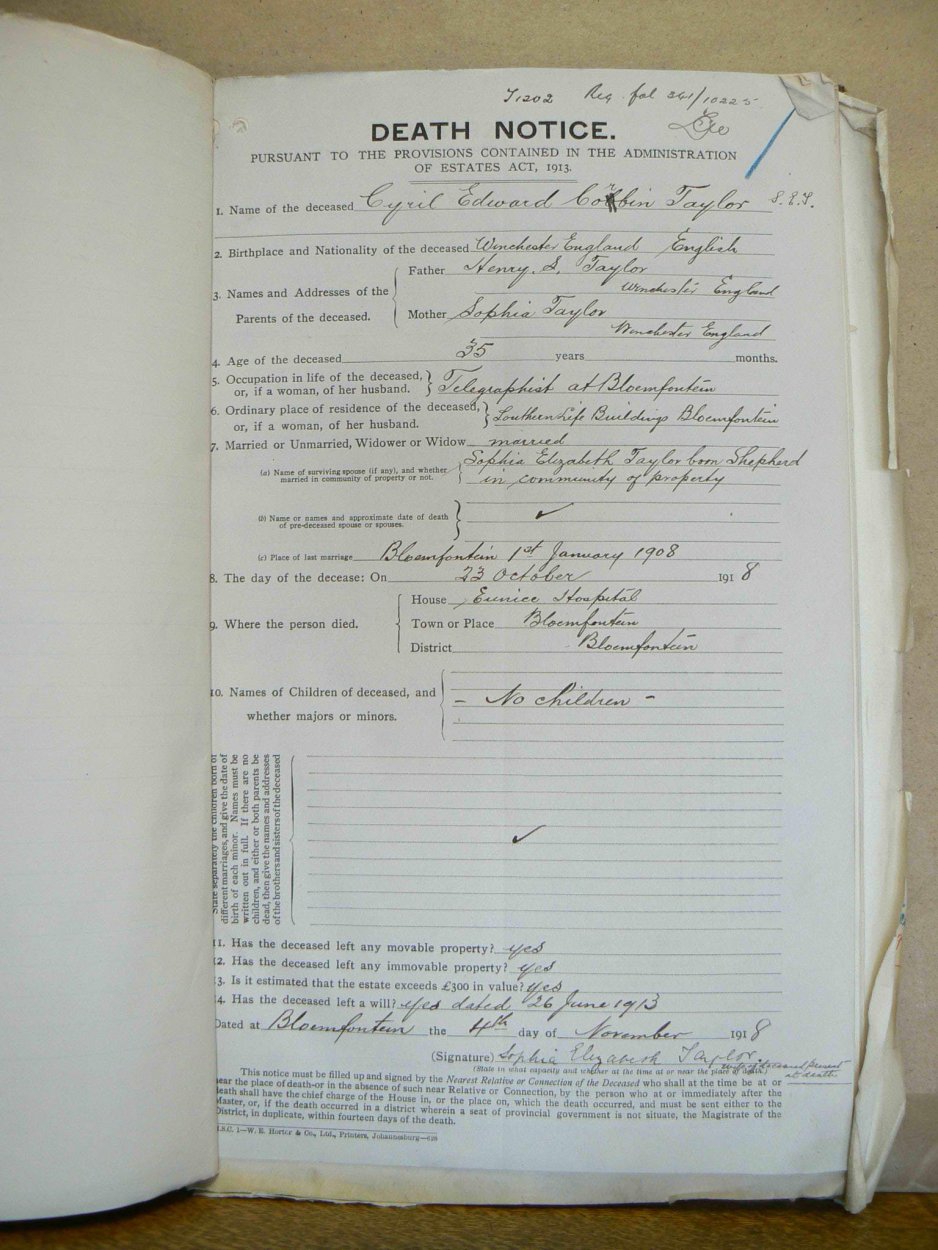 T1202 Reg. fol 361/10225
DEATH NOTICE.
PURSUANT TO THE PROVISIONS CONTAINED IN THE ADMINISTRATION
OF ESTATES ACT, 1913.
1. Name of the deceased Cyril Edward Corbin Taylor S.E.T.
2. Birthplace and Nationality of the deceased Winchester England English
3. Names and Addresses of the Parents of the deceased. Father Henry. S. Taylor
Winchester England
Mother Sophia Taylor
Winchester England
4. Age of the deceased 35 years months.
5. Occupation in life of the deceased, or, if a woman, of her husband. Telegraphist at Bloemfontein
6. Ordinary place of residence of the deceased, or, if a woman, of her husband. Southern Life Buildings Bloemfontein
7. Married or Unmarried, Widower or Widow married
(a) Name of surviving spouse (if any), and whether married in community of property or not. Sophia Elizabeth Taylor born Shepherd
in community of property
(b) Name or names and approximate date of death of pre-deceased spouse or spouses. ✓
(c) Place of last marriage Bloemfontein 1st January 1908
8. The day of the decease: On 23 October 1918
9. Where the person died. House Eunice Hospital
Town or Place Bloemfontein
District Bloemfontein
10. Names of Children of deceased, and whether majors or minors. - No children -
State separately the children born of
different marriages, and give the date of
birth of each minor. Names must be
written out in full. If there are no
children, and either or both parents be
dead, then give the names and addresses
of the brothers and sisters of the deceased
✓
11. Has the deceased left any movable property? yes
12. Has the deceased left any immovable property? yes
13. Is it estimated that the estate exceeds £300 in value? yes
14. Has the deceased left a will? yes dated 26 June 1913
Dated at Bloemfontein the 4th day of November 1918
(Signature) Sophia Elizabeth Taylor.
(State in what capacity and whether at the time at or near the place of death.) wife of deceased present
at death.
This notice must be filled up and signed by the Nearest Relative or Connection of the Deceased who shall at the time be at or
near the place of death-or in the absence of such near Relative or Connection, by the person who at or immediately after the
death shall have the chief charge of the House in, or the place on, which the death occurred, and must be sent either to the
Master, or, if the death occurred in a district wherein a seat of provincial government is not situate, the Magistrate of the
District, in duplicate, within fourteen days of the death.
U.S.C. 1—W. E. Hortor & Co., Ltd., Printers, Johannesburg—628